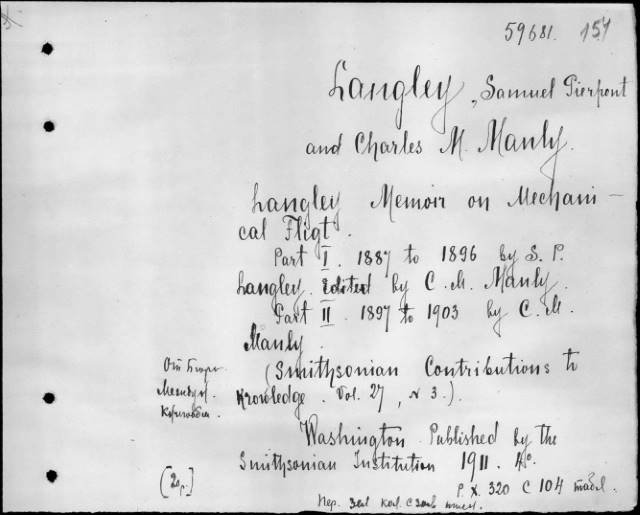 59681. 154
Langley, Samuel Pierpont
and Charles M. Manly.
Langley Memoir on Mechani-
cal Fligt.
Part I. 1887 to 1896 by S. P.
Langley. Edited by C. M. Manly.
Part II. 1897 to 1903 by C. M.
Manly.
(Smithsonian Contributions to
Knowledge. Vol. 27, N 3.).
Washington. Published by the
Smithsonian Institution 1911. 4o.
P. X. 320 с 104 табл.
Пер.
От